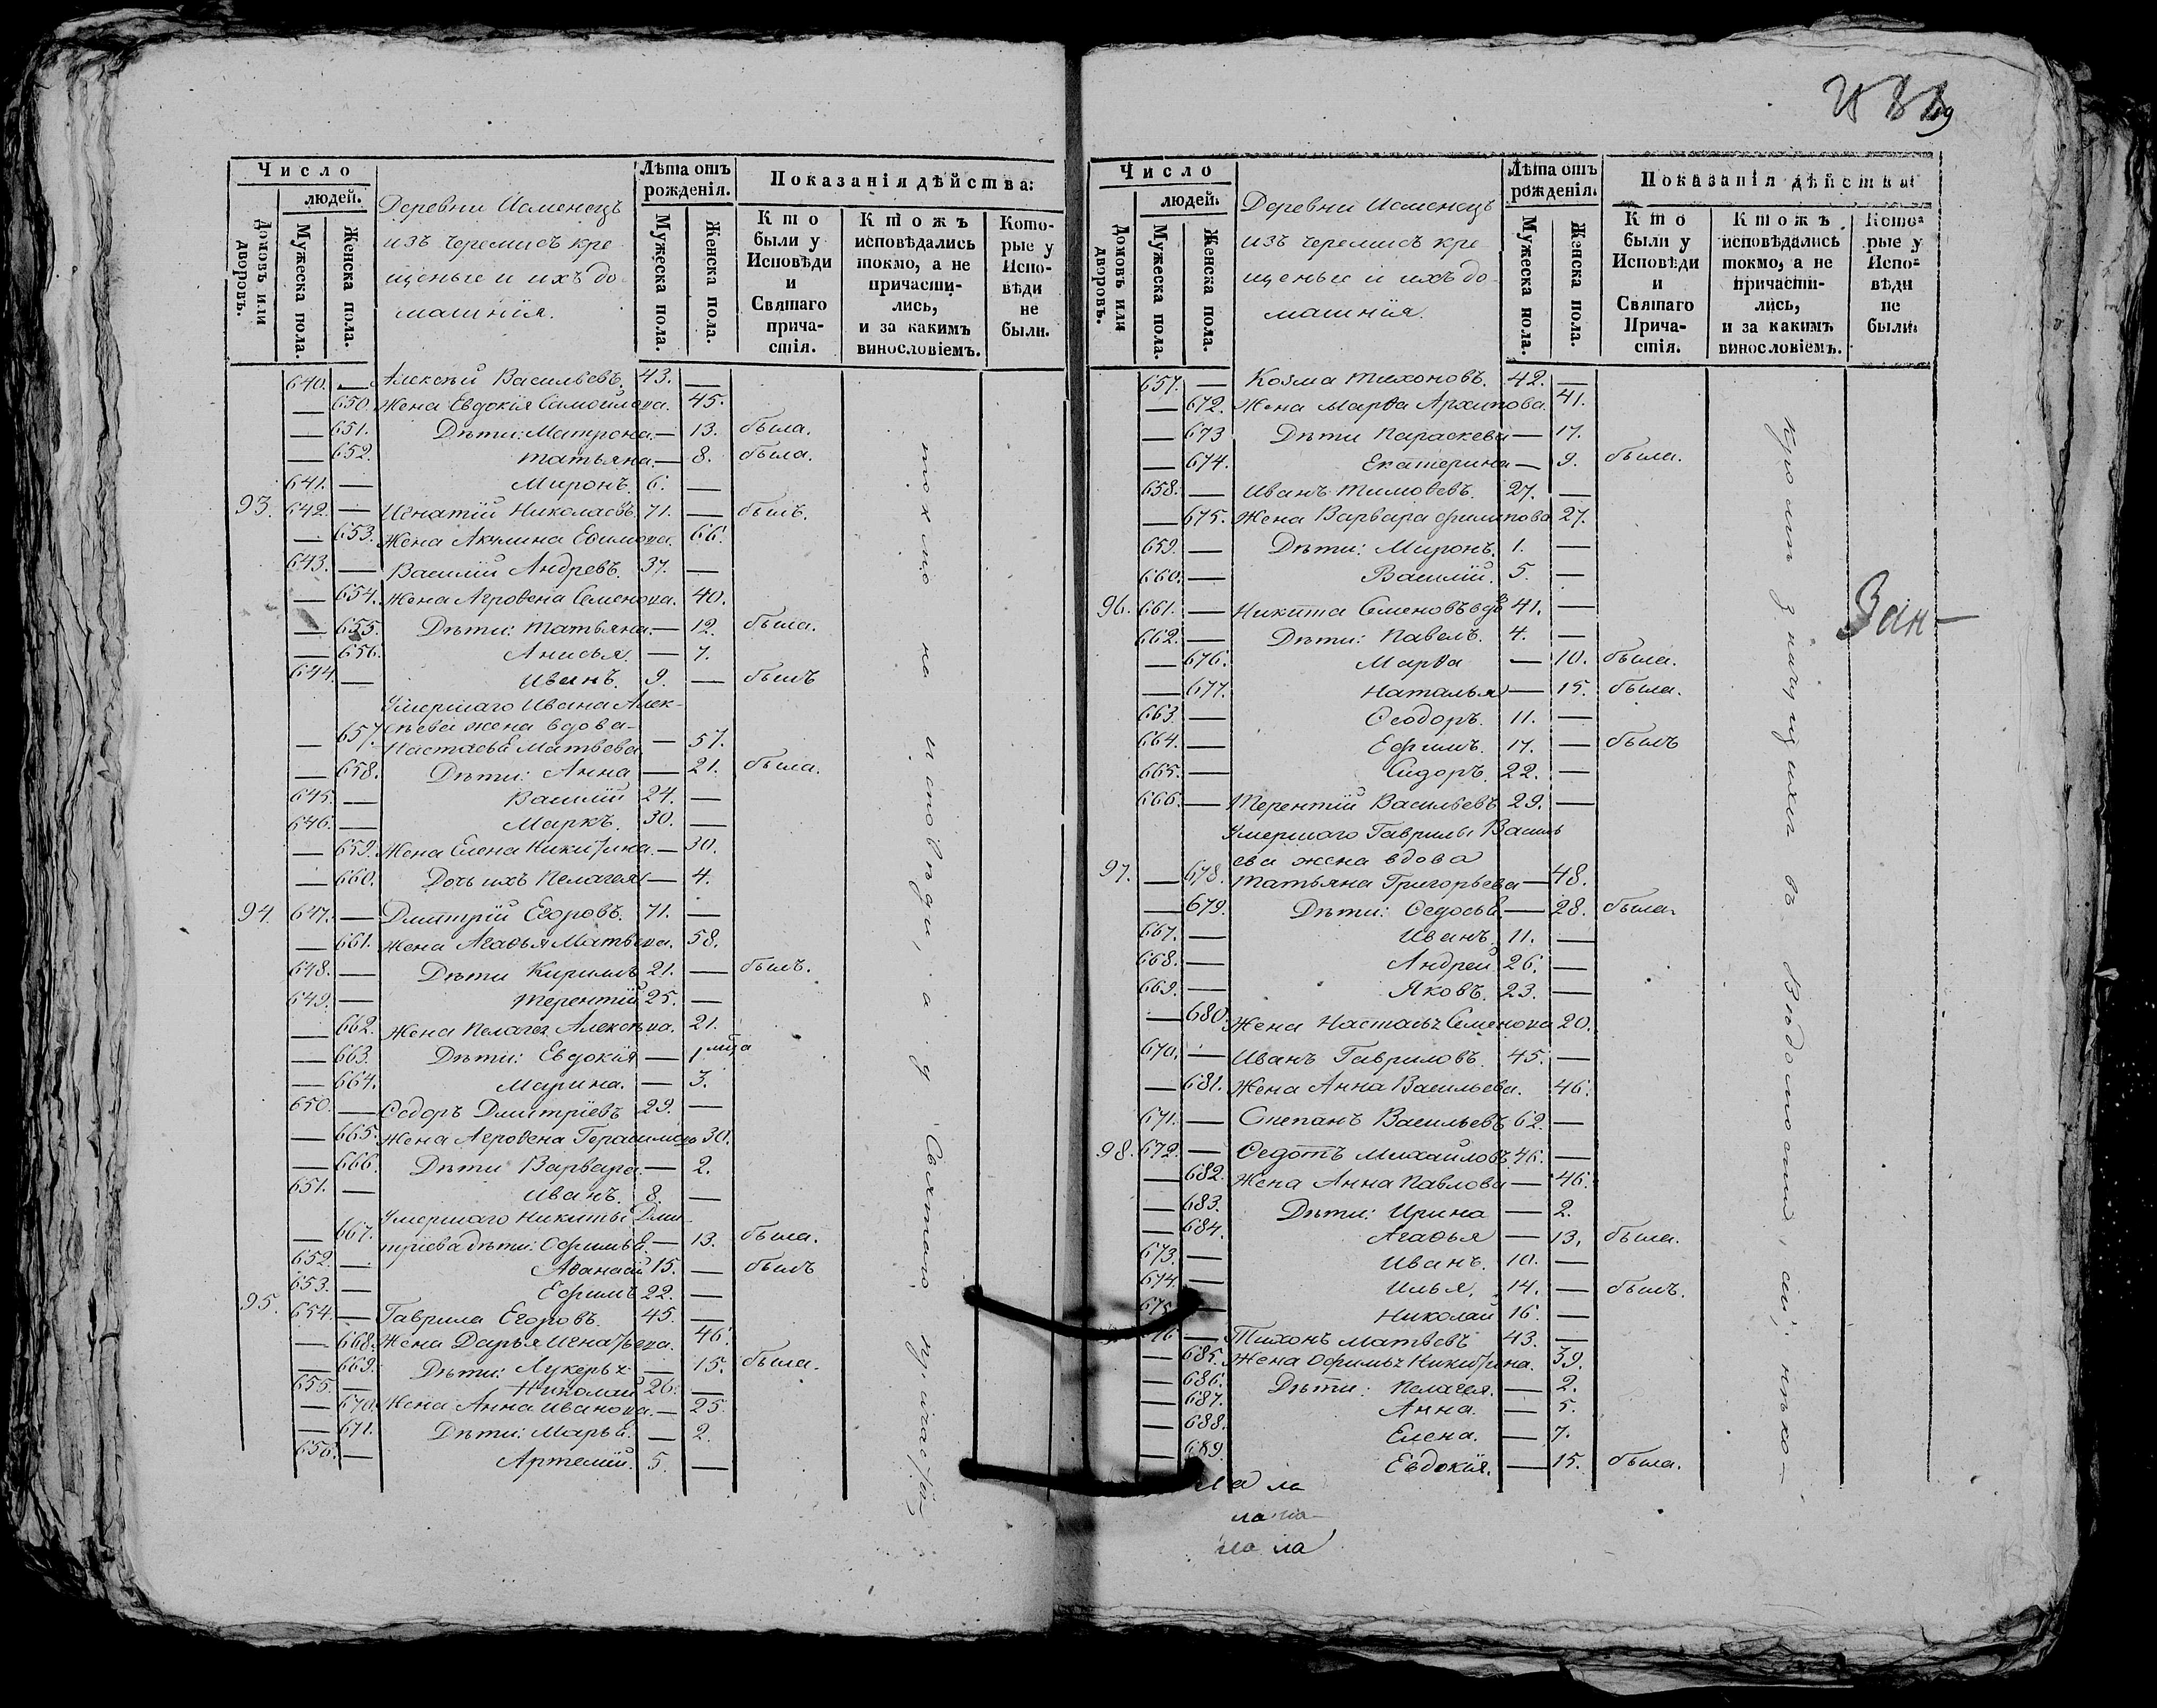 Число
людей.
Домовъ или дворовъ.
Мужеска пола.
Женска пола.
Деревни Исменецъ
изъ черемисъ кре
щеные и ихъ до
машнія.
Лѣта отъ рожденія.
Мужеска пола.
Женска пола.
Показанія дѣйства:
Кто были у Исповѣди и Святаго причастія.
Ктожъ исповѣдались токмо, а не причастились, и за какимъ винословіемъ.
Которые у Исповѣди не были.
640. — Алексѣй Васильевъ. 43. —
— 650. Жена Евдокія Самойлова. 45.
— 651. Дѣти: Матрона. — 13. была.
— 652. Татьяна. — 8. была.
641. — Миронъ. 6. —
93. 642. — Игнатій Николаевъ. 71. — былъ.
— 653. Жена Акулина Ефимова. 66.
643. — Василій Андревъ. 37. —
— 654. Жена Агрофена Семенова. 40.
— 655. Дѣти: Татьяна. — 12. была.
— 656. Анисья. — 7.
644. — Иванъ. 9. — былъ
Умершаго Ивана Алек-
сѣева жена вдова
— 657. Настасья Матвева — 57.
— 658. Дѣти: Анна — 21. была.
645. — Василій 24. —
646. — Маркъ. 30. —
— 659. Жена Елена Никитина. — 30.
— 660. Дочь ихъ Пелагея — 4.
94. 647. — Дмитрій Егоровъ. 71. —
— 661. Жена Агафья Матвева. 58.
648. — Дѣти Кириллъ 21. — былъ.
649. — Терентій 25. —
— 662. Жена Пелагея Алексѣва. 21.
— 663. Дѣти: Евдокія — 1 мца
— 664. Марина. — 3.
650. — Ѳедоръ Дмитріевъ 29. —
— 665. Жена Агрофена Герасимова 30.
— 666. Дѣти Варвара. — 2.
651. — Иванъ. 8. —
Умершаго Никиты Дми-
— 667. тріева дѣти: Офимья. — 13. была.
652. — Аѳанасій 15. — былъ
653. — Ефимъ 22. —
95. 654. — Гаврила Егоровъ. 45. —
— 668. Жена Дарья Игнатьева. 46.
— 669. Дѣти: Лукерья — 15. была.
655. — Николай 26. —
— 670. Жена Анна Иванова. — 25.
— 671. Дѣти: Марья. — 2.
656. — Артемій. 5. —
токмо на исповѣди, а у Святаго причастія
Число
людей.
Домовъ или дворовъ.
Мужеска пола.
Женска пола.
Деревни Исменецъ
изъ черемисъ кре
щеные и ихъ до
машнія.
Лѣта отъ рожденія.
Мужеска пола.
Женска пола.
Показанія дѣйства:
Кто были у Исповѣди и Святаго Причастія.
Ктожъ исповѣдались токмо, а не причастились, и за какимъ винословіемъ.
Которые у Исповѣди не были.
657. — Козма Тихоновъ. 42. —
— 672. Жена Марѳа Архипова. 41.
— 673 Дѣти Параскева — 17.
— 674. Екатерина — 9. была.
658. — Иванъ Тимоѳевъ. 27. —
— 675. Жена Варвара Филипова 27.
659. — Дѣти: Миронъ. 1. —
660. — Василій. 5. —
96. 661. — Никита Семеновъ вдв 41. —
662. — Дѣти: Павелъ. 4. —
— 676. Марѳа — 10. была.
— 677. Наталья — 15. была.
663. — Ѳеодоръ. 11. —
664. — Ефимъ. 17. — былъ
665. — Сидоръ. 22. —
666. — Терентій Васильевъ 29. —
Умершаго Гаврилы Василь
ева жена вдова
97. — 678. Татьяна Григорьева — 48.
— 679. Дѣти: Ѳедосья — 28. была.
667. — Иванъ. 11. —
668. — Андрей 26. —
669. — Яковъ. 23. —
— 680. Жена Настасья Семенова 20.
670. — Иванъ Гавриловъ. 45. —
— 681. Жена Анна Васильева. 46.
671. — Степанъ Васильевъ 62. —
98. 672. — Ѳедотъ Михайловъ 46. —
— 682. Жена Анна Павлова — 46.
— 683. Дѣти: Ирина — 2.
— 684. Агафья — 13. была.
673. — Иванъ. 10. —
674. — Илья. 14. — былъ.
675 — Николай 16. —
76 — Тихонъ Матвевъ 43. —
— 685. Жена Офимья Никитина. 39.
— 686. Дѣти: Пелагея. — 2.
— 687. Анна. — 5.
— 688. Елена. — 7.
— 689. Евдокія. — 15. была.
кромѣ значущихся въ Вѣдомостяхъ, ни
Зан-
ла ла
ла ла
ла ла